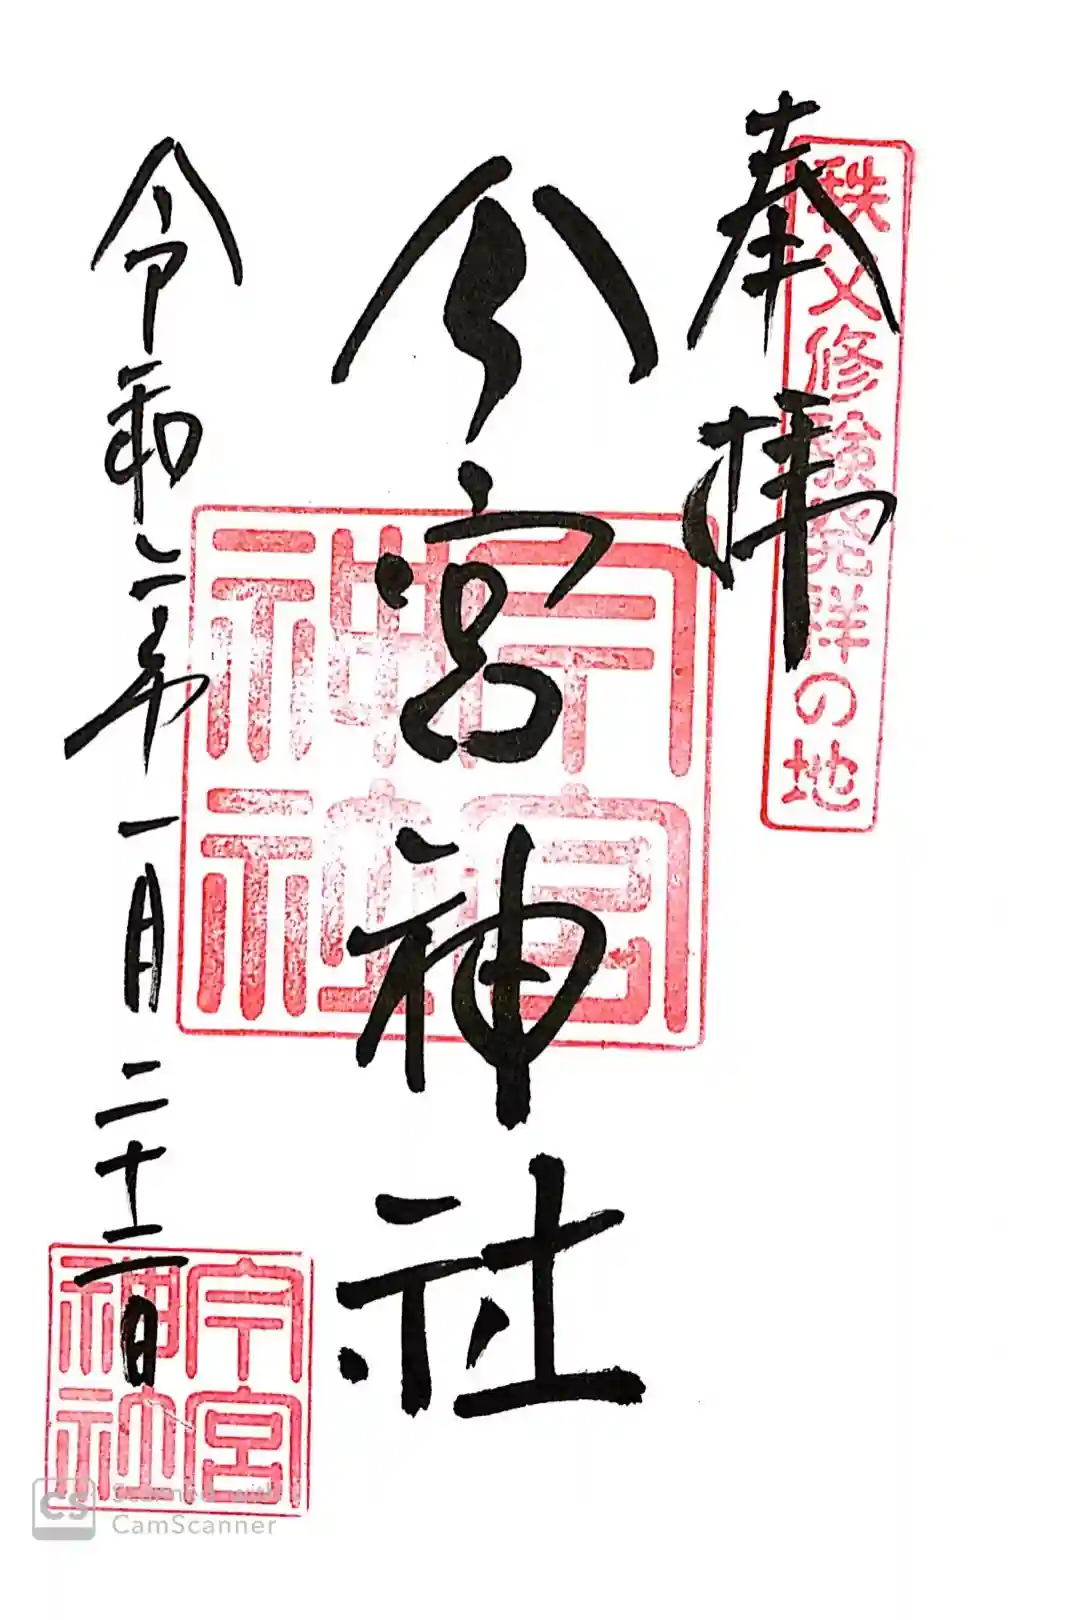 奉拝
秩父修験発祥の地
今宮神社
今宮神社
令和二年一月二十二日
今宮神社
CS Scanned with
CamScanner